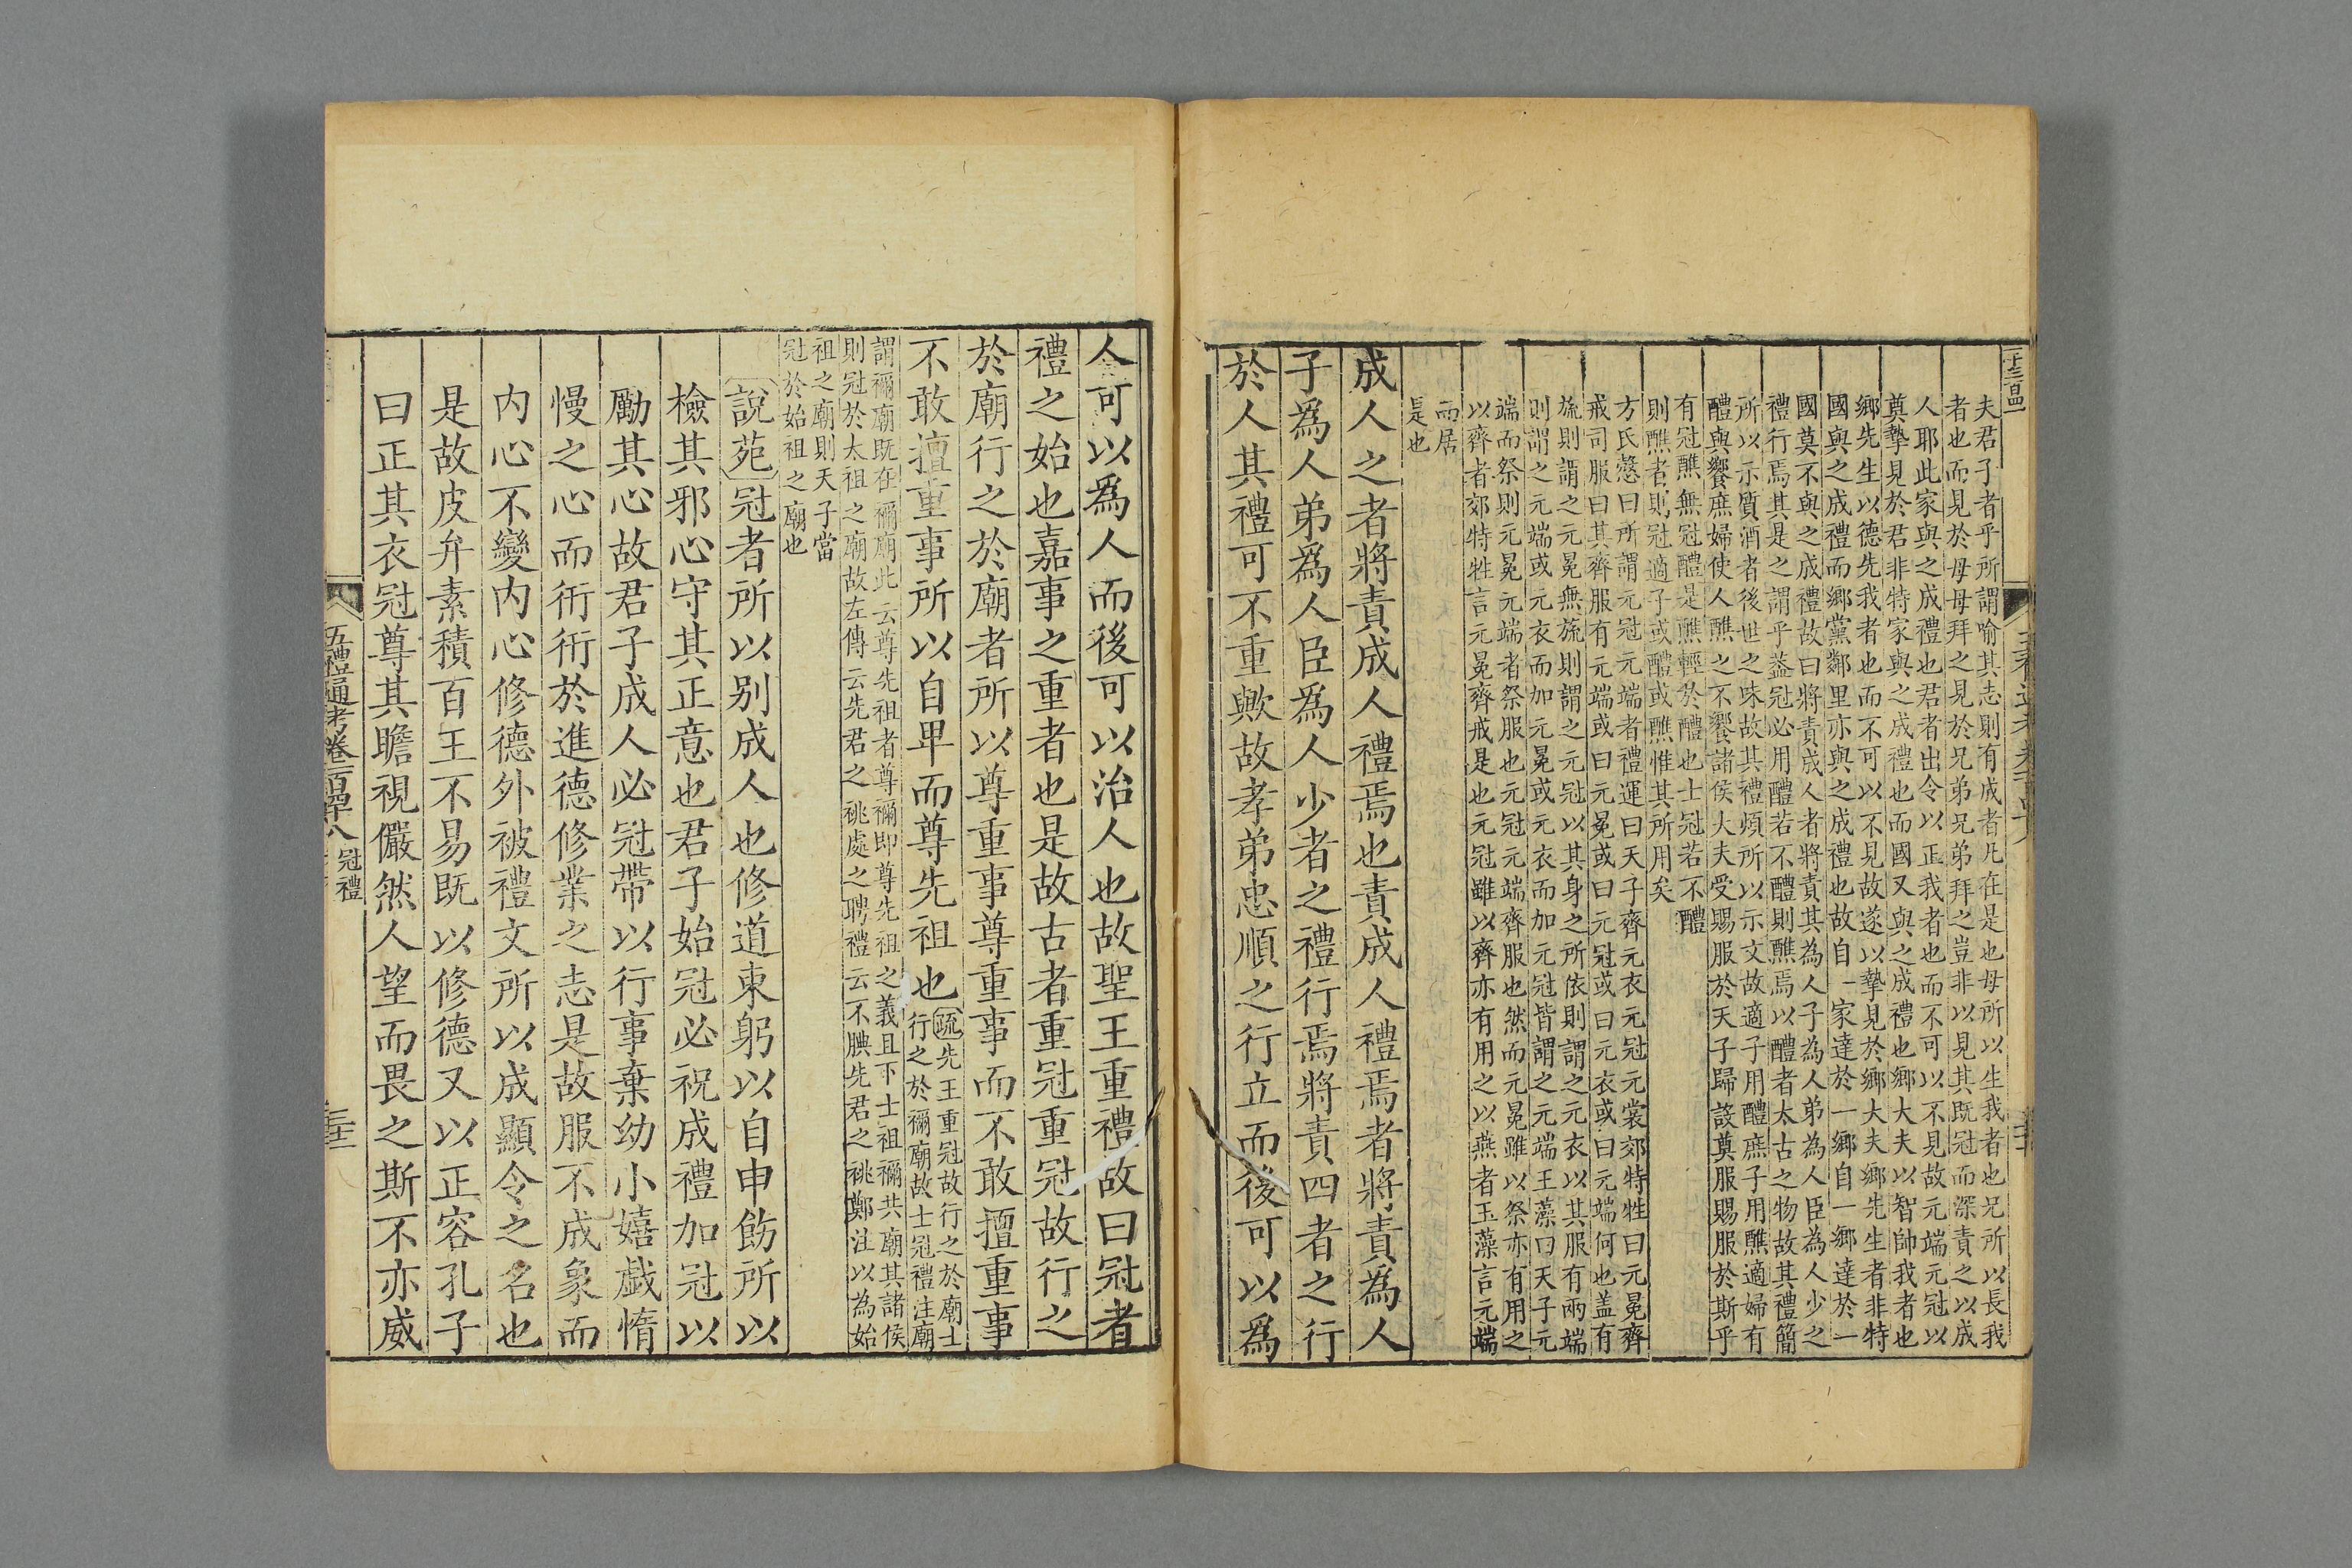 夫君子者乎所謂喻其志則有成者凡在是也母所以生我者也兄所以長我
者也而見於母母拜之見於兄弟兄弟拜之豈非以見其既冠而深責之以成
人耶此家與之成禮也君者出令以正我者也而不可以不見故元端元冠以
奠摯見於君非特家與之成禮也而國又與之成禮也鄉大夫以智帥我者也
鄉先生以德先我者也而不可以不見故遂以摯見於鄉大夫鄉先生者非特
國與之成禮而鄉黨鄰里亦與之成禮也故自一家達於一鄉自一鄉達於一
國莫不與之成禮故曰將責成人者將責其為人子為人弟為人臣為人少之
禮行焉其是之謂乎葢冠必用醴若不醴則醮焉以醴者太古之物故其禮簡
所以示質酒者後世之味故其禮煩所以示文故適子用醴庶子用醮適婦有
醴與饗庶婦使人醮之不饗諸侯大夫受賜服於天子歸設奠服賜服於斯乎
有冠醮無冠醴是醮輕於醴也士冠若不醴
則醮者則冠適子或醴或醮惟其所用矣
方氏慤曰所謂元冠元端者禮運曰天子齊元衣元冠元裳郊特牲曰元冕齊
戒司服曰其齊服有元端或曰元冕或曰元冠或曰元衣或曰元端何也盖有
旒則謂之元冕無旒則謂之元冠以其身之所依則謂之元衣以其服有兩端
則謂之元端或元衣而加元冕或元衣而加元冠皆謂之元端玉藻曰天子元
端而祭則元冕元端者祭服也元冠元端齊服也然而元冕雖以祭亦有用之
以齊者郊特牲言元冕齊戒是也元冠雖以齊亦有用之以燕者玉藻言元端
而居
是也
成人之者將責成人禮焉也責成人禮焉者將責為人
子爲人弟爲人臣爲人少者之禮行焉將責四者之行
於人其禮可不重歟故孝弟忠順之行立而後可以爲
人可以爲人而後可以治人也故聖王重禮故曰冠者
禮之始也嘉事之重者也是故古者重冠重冠故行之
於廟行之於廟者所以尊重事尊重事而不敢擅重事
不敢擅重事所以自卑而尊先祖也疏先王重冠故行之於廟士
行之於禰廟故士冠禮注廟
謂禰廟既在禰廟此云尊先祖者尊禰即尊先祖之義且下士祖禰共廟其諸侯
則冠於太祖之廟故左傳云先君之祧處之聘禮云不腆先君之祧鄭注以為始
祖之廟則天子當
冠於始祖之廟也
說苑冠者所以别成人也修道束躬以自申飭所以
檢其邪心守其正意也君子始冠必祝成禮加冠以
勵其心故君子成人必冠帶以行事棄幼小嬉戲惰
慢之心而衎衎於進德修業之志是故服不成象而
内心不變内心修德外被禮文所以成顯令之名也
是故皮弁素積百王不易既以修德又以正容孔子
曰正其衣冠尊其瞻視儼然人望而畏之斯不亦威
五禮通考卷一百四十八 冠禮